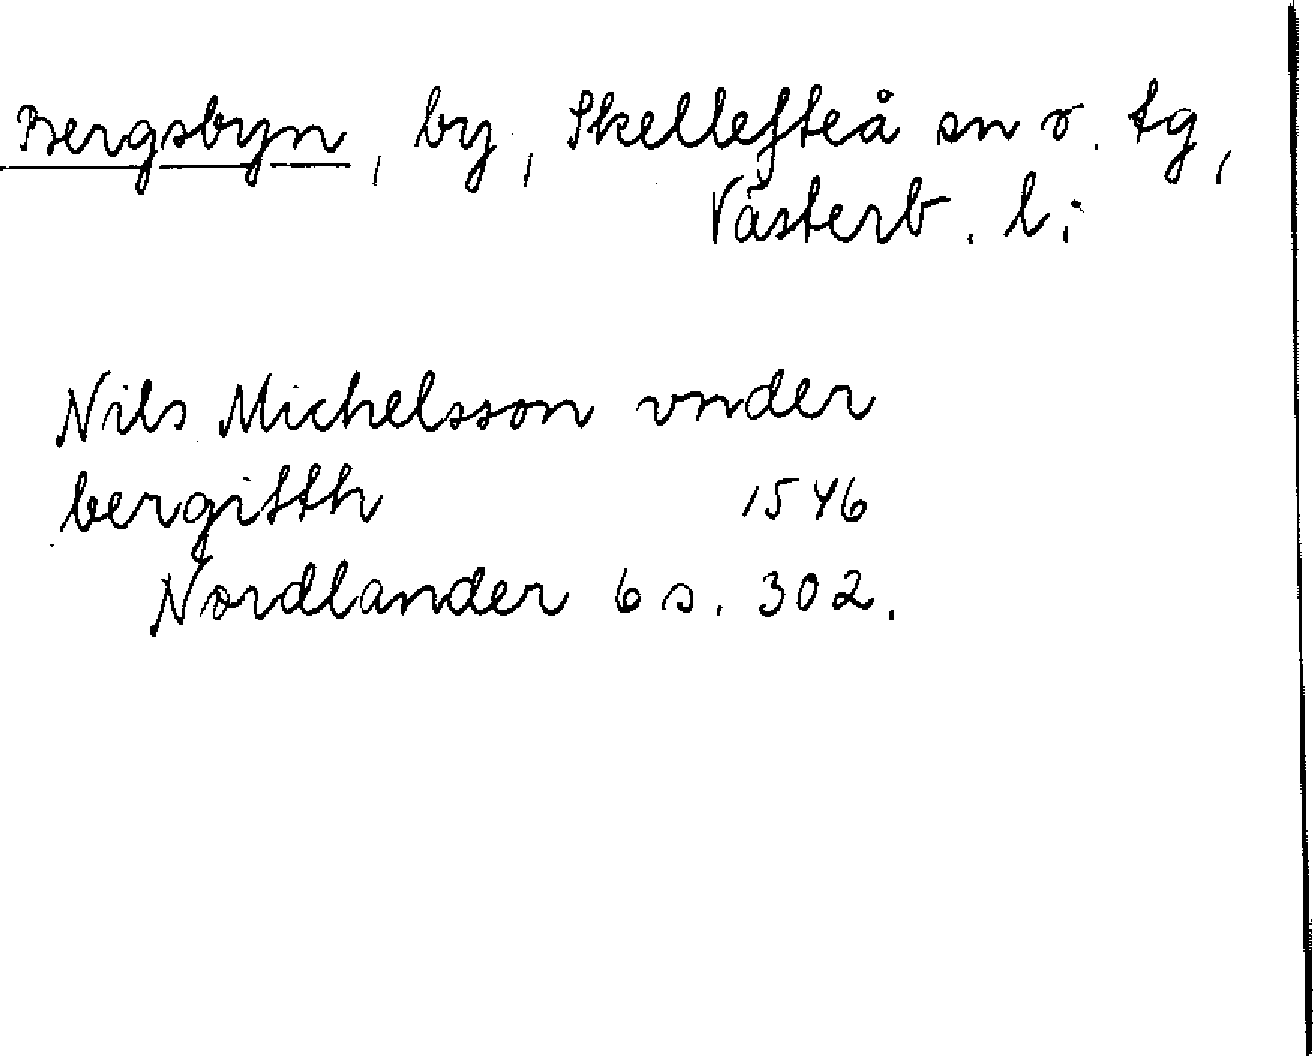 Bergsbyn, by, Skellefteå sn o. tg,
Västerb. l.:
Nils Michelsson vnder
bergitth 1546
Nordlander 6 s. 302.